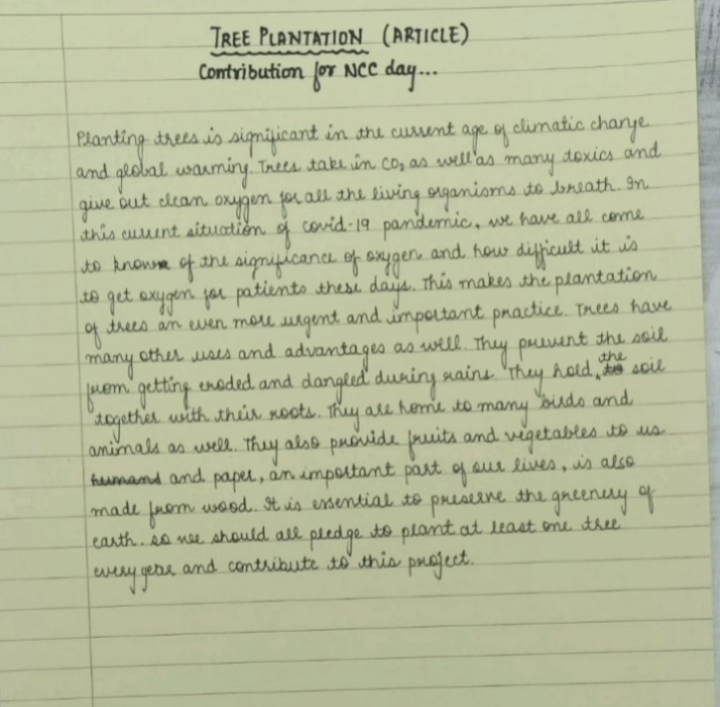 TREE PLANTATION (ARTICLE)
Contribution for NCC day...
Planting trees is significant in the current age of climatic change
and global warming. Trees take in CO2 as well as many toxics and
give out clean oxygen for all the living organisms to breath. In
this current situation of covid-19 pandemic, we have all come
to know of the significance of oxygen and how difficult it is
to get oxygen for patients these days. This makes the plantation
of trees an even more urgent and important practice. Trees have
many other uses and advantages as well. They prevent the soil
from getting eroded and dangled during rains. They hold, the soil
together with their roots. They are home to many birds and
animals as well. They also provide fruits and vegetables to us
humans and paper, an important part of our lives, is also
made from wood. It is essential to preserve the greenery of
earth. so we should all pledge to plant at least one tree
every year and contribute to this project.